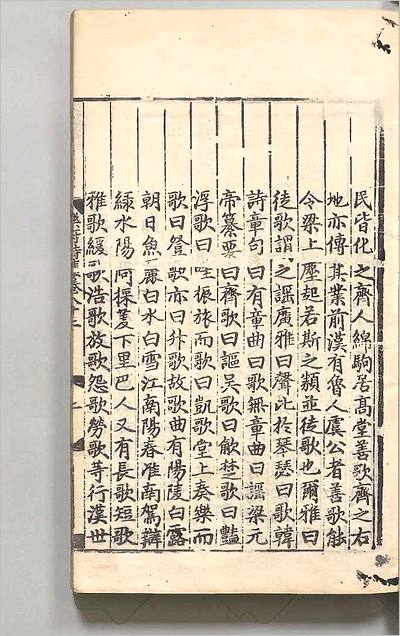 民皆化之齊人綿駒居高堂善歌齊之右
地亦傳其業前漢有魯人虞公者善歌能
令梁上塵起若斯之類並徒歌也爾雅曰
徒歌謂之謡廣雅曰聲比扵琴瑟曰歌韓
詩章句曰有章曲曰歌無章曲曰謡梁元
帝纂要曰齊歌曰謳吳歌曰歈楚歌曰豔
浮歌曰哇振旅而歌曰凱歌堂上奏樂而
歌曰登歌亦曰升歌故歌曲有陽陵白露
朝日魚麗白水白雪江南陽春淮南駕辯
緑水陽阿採菱下里巴人又有長歌短歌
雅歌緩歌浩歌放歌怨歌勞歌等行漢世